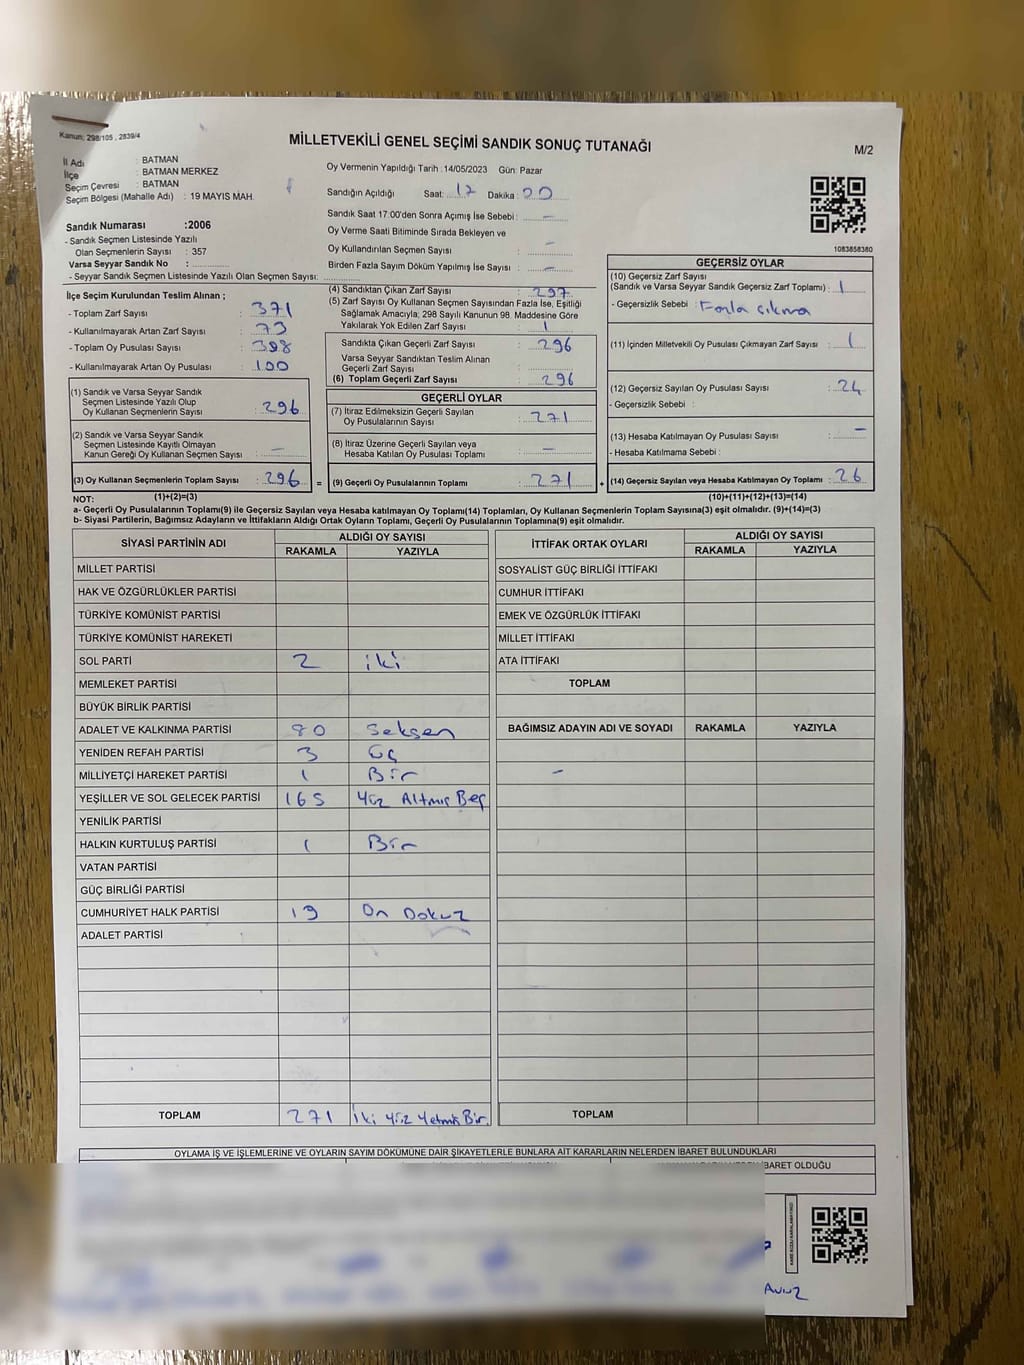 Kanun; 298/105 , 2839/4
MİLLETVEKİLİ GENEL SEÇİMİ SANDIK SONUÇ TUTANAĞI
M/2
İl Adı : BATMAN
İlçe : BATMAN MERKEZ
Seçim Çevresi : BATMAN
Seçim Bölgesi (Mahalle Adı) : 19 MAYIS MAH.
Oy Vermenin Yapıldığı Tarih : 14/05/2023 Gün: Pazar
Sandığın Açıldığı Saat: 17 Dakika: 00
Sandık Saat 17:00'den Sonra Açılmış İse Sebebi : –
Oy Verme Saati Bitiminde Sırada Bekleyen ve
Oy Kullandırılan Seçmen Sayısı –
Birden Fazla Sayım Döküm Yapılmış İse Sayısı : –
Sandık Numarası :2006
- Sandık Seçmen Listesinde Yazılı
Olan Seçmenlerin Sayısı : 357
Varsa Seyyar Sandık No :
- Seyyar Sandık Seçmen Listesinde Yazılı Olan Seçmen Sayısı:
1083858380
İlçe Seçim Kurulundan Teslim Alınan ;
- Toplam Zarf Sayısı : 371
- Kullanılmayarak Artan Zarf Sayısı : 73
- Toplam Oy Pusulası Sayısı : 398
- Kullanılmayarak Artan Oy Pusulası : 100
(1) Sandık ve Varsa Seyyar Sandık
Seçmen Listesinde Yazılı Olup
Oy Kullanan Seçmenlerin Sayısı : 296
(2) Sandık ve Varsa Seyyar Sandık
Seçmen Listesinde Kayıtlı Olmayan
Kanun Gereği Oy Kullanan Seçmen Sayısı : –
(3) Oy Kullanan Seçmenlerin Toplam Sayısı : 296 =
(4) Sandıktan Çıkan Zarf Sayısı : 297
(5) Zarf Sayısı Oy Kullanan Seçmen Sayısından Fazla İse, Eşitliği
Sağlamak Amacıyla; 298 Sayılı Kanunun 98. Maddesine Göre
Yakılarak Yok Edilen Zarf Sayısı : 1
Sandıkta Çıkan Geçerli Zarf Sayısı : 296
Varsa Seyyar Sandıktan Teslim Alınan
Geçerli Zarf Sayısı :
(6) Toplam Geçerli Zarf Sayısı : 296
GEÇERLİ OYLAR
(7) İtiraz Edilmeksizin Geçerli Sayılan
Oy Pusulalarının Sayısı : 271
(8) İtiraz Üzerine Geçerli Sayılan veya
Hesaba Katılan Oy Pusulası Toplamı : –
(9) Geçerli Oy Pusulalarının Toplamı : 271 +
GEÇERSİZ OYLAR
(10) Geçersiz Zarf Sayısı
(Sandık ve Varsa Seyyar Sandık Geçersiz Zarf Toplamı) : 1
- Geçersizlik Sebebi : Fazla çıkma
(11) İçinden Milletvekili Oy Pusulası Çıkmayan Zarf Sayısı : 1
(12) Geçersiz Sayılan Oy Pusulası Sayısı : 24
- Geçersizlik Sebebi :
(13) Hesaba Katılmayan Oy Pusulası Sayısı : –
- Hesaba Katılmama Sebebi :
(14) Geçersiz Sayılan veya Hesaba Katılmayan Oy Toplamı : 26
NOT: (1)+(2)=(3) (10)+(11)+(12)+(13)=(14)
a- Geçerli Oy Pusulalarının Toplamı(9) ile Geçersiz Sayılan veya Hesaba katılmayan Oy Toplamı(14) Toplamları, Oy Kullanan Seçmenlerin Toplam Sayısına(3) eşit olmalıdır. (9)+(14)=(3)
b- Siyasi Partilerin, Bağımsız Adayların ve İttifakların Aldığı Ortak Oyların Toplamı, Geçerli Oy Pusulalarının Toplamına(9) eşit olmalıdır.
SİYASİ PARTİNİN ADI ALDIĞI OY SAYISI
RAKAMLA YAZIYLA
MİLLET PARTİSİ
HAK VE ÖZGÜRLÜKLER PARTİSİ
TÜRKİYE KOMÜNİST PARTİSİ
TÜRKİYE KOMÜNİST HAREKETİ
SOL PARTİ 2 iki
MEMLEKET PARTİSİ
BÜYÜK BİRLİK PARTİSİ
ADALET VE KALKINMA PARTİSİ 80 Seksen
YENİDEN REFAH PARTİSİ 3 Üç
MİLLİYETÇİ HAREKET PARTİSİ 1 Bir
YEŞİLLER VE SOL GELECEK PARTİSİ 165 Yüz Altmış Beş
YENİLİK PARTİSİ
HALKIN KURTULUŞ PARTİSİ 1 Bir
VATAN PARTİSİ
GÜÇ BİRLİĞİ PARTİSİ
CUMHURİYET HALK PARTİSİ 19 On Dokuz
ADALET PARTİSİ
TOPLAM 271 İki Yüz Yetmiş Bir.
İTTİFAK ORTAK OYLARI ALDIĞI OY SAYISI
RAKAMLA YAZIYLA
SOSYALİST GÜÇ BİRLİĞİ İTTİFAKI
CUMHUR İTTİFAKI
EMEK VE ÖZGÜRLÜK İTTİFAKI
MİLLET İTTİFAKI
ATA İTTİFAKI
TOPLAM
BAĞIMSIZ ADAYIN ADI VE SOYADI RAKAMLA YAZIYLA
–
TOPLAM
OYLAMA İŞ VE İŞLEMLERİNE VE OYLARIN SAYIM DÖKÜMÜNE DAİR ŞİKAYETLERLE BUNLARA AİT KARARLARIN NELERDEN İBARET BULUNDUKLARI
İBARET OLDUĞU